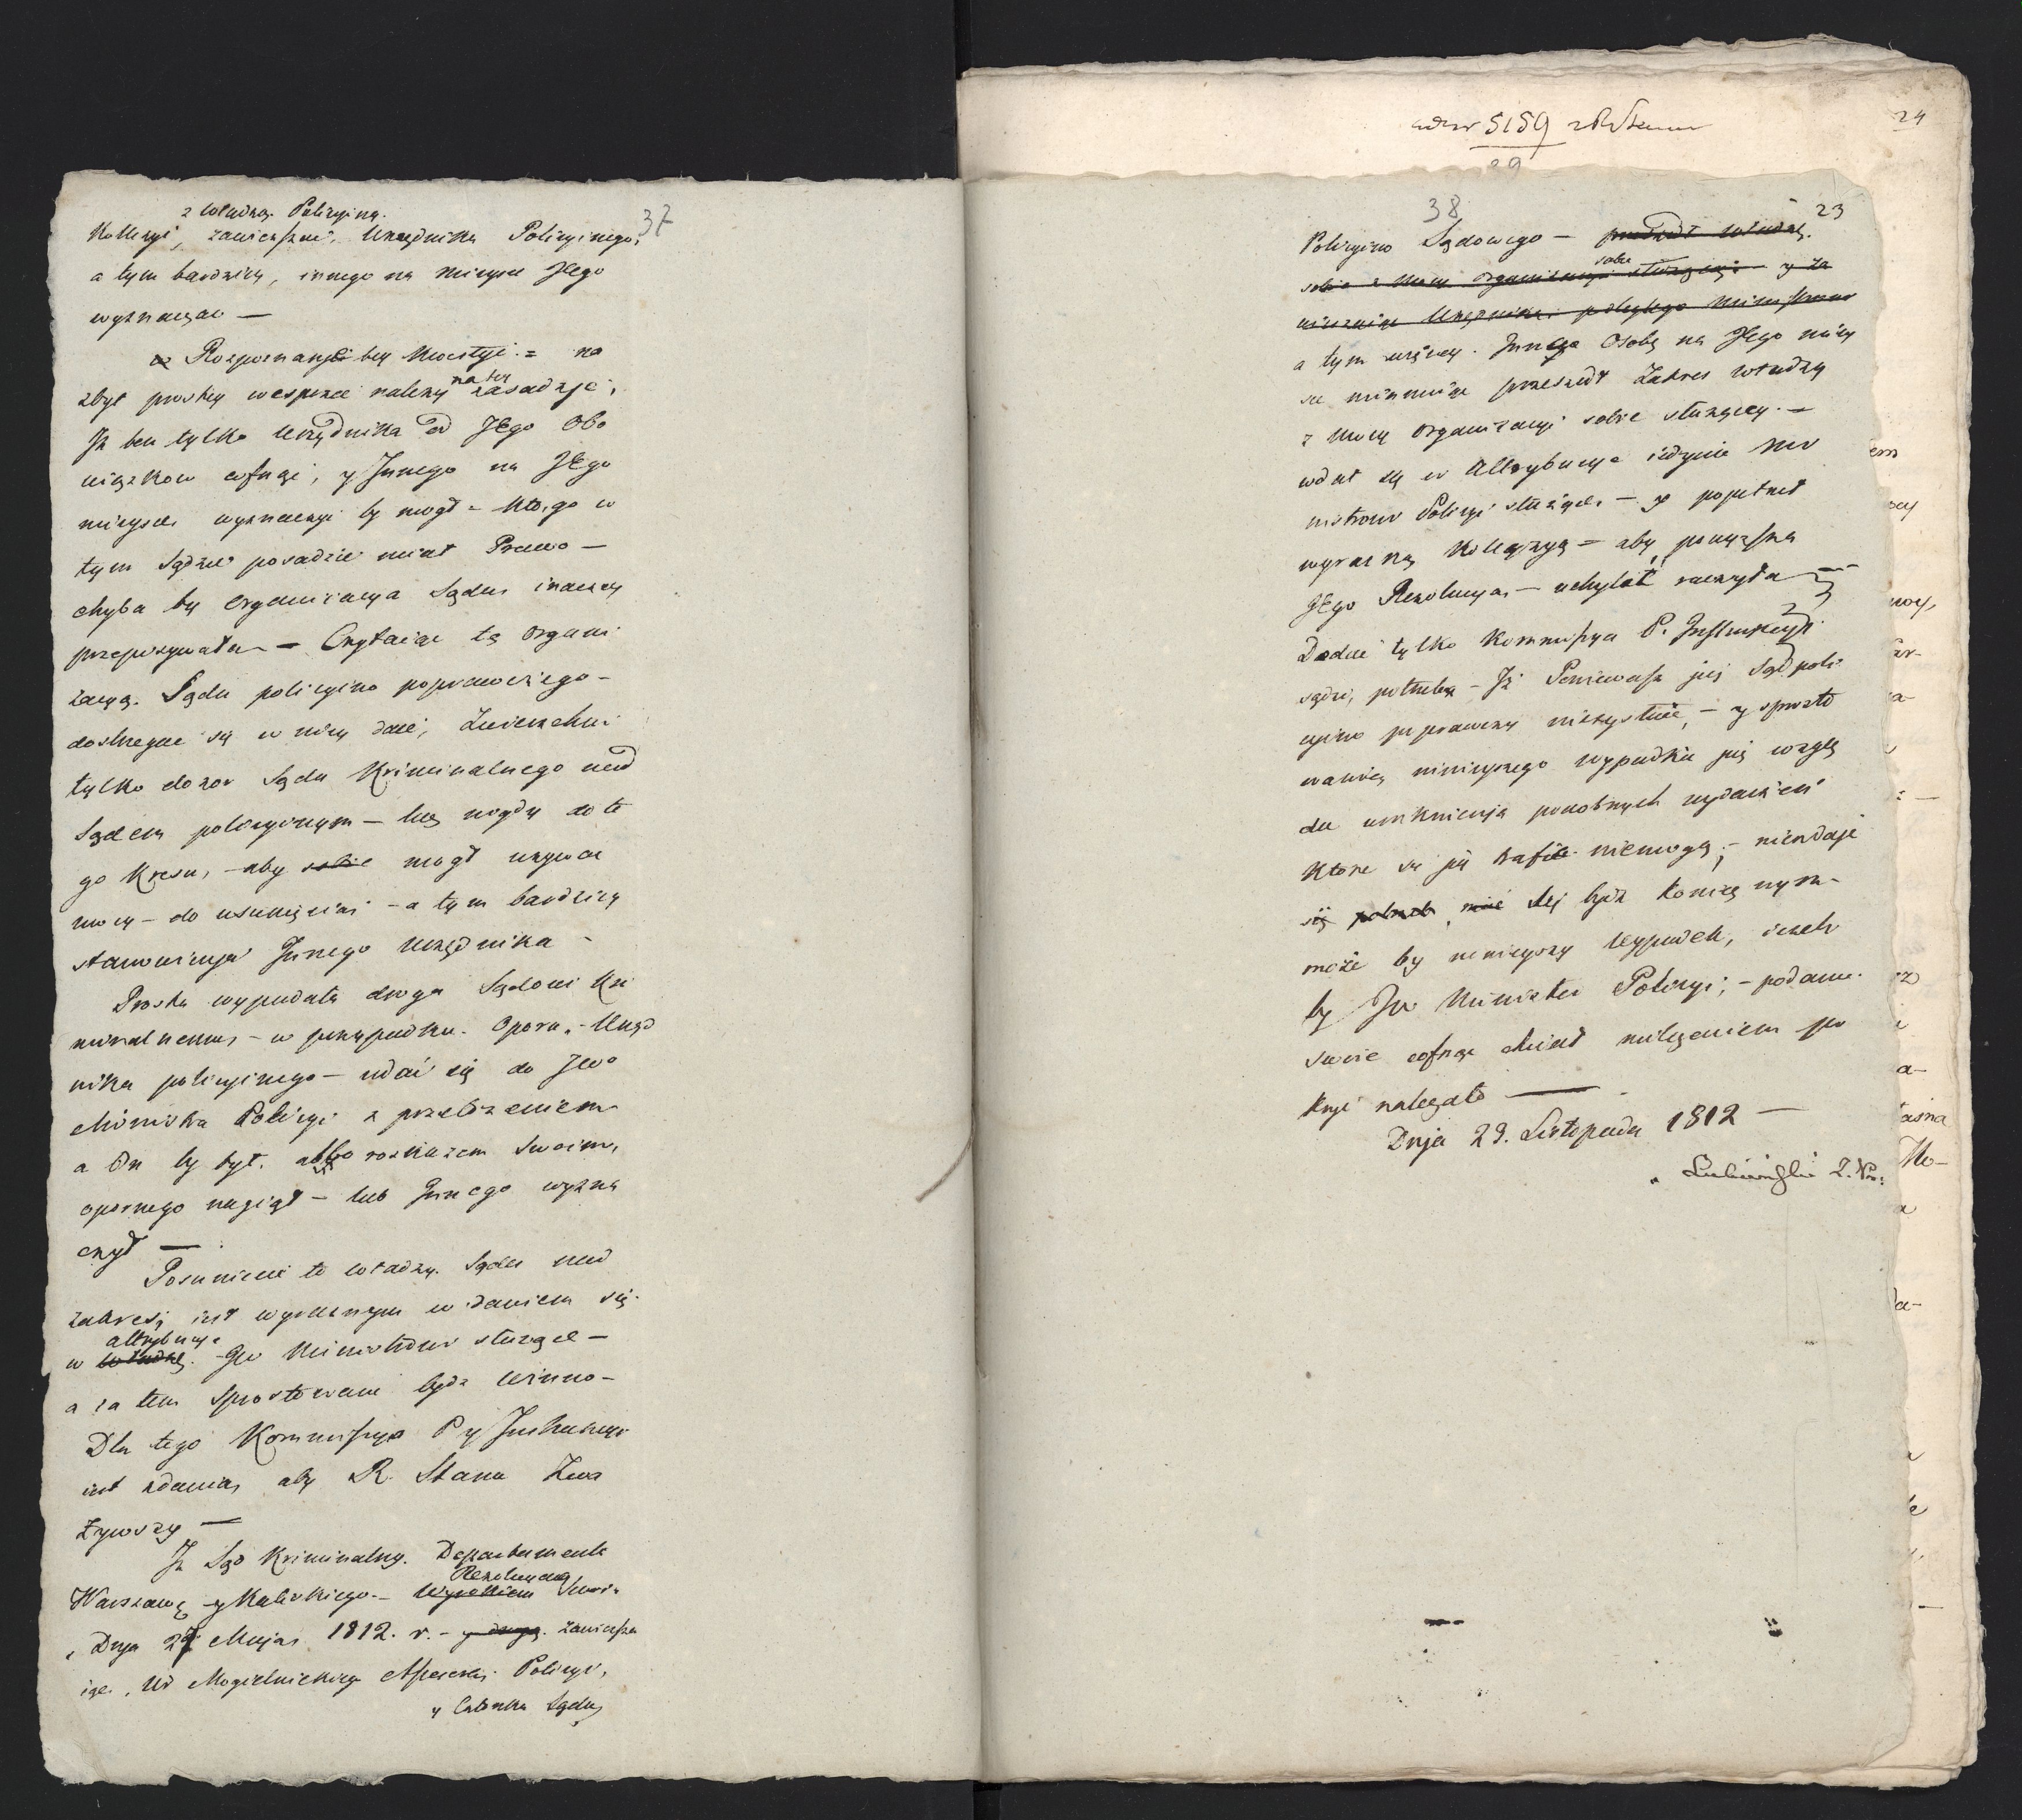 z władzą Policyiną.
Kollizyi, zawieszać Urzędnika Policyinego, 37
a tym bardziey, innego na mieysce Jego
wyznaczać —
Rozpoznanie tey Kwestyi = na
zbyt prostey wesprzeć należy na tey zasadzie,
Iż ten tylko Urzędnika od Jego Obo
wiązkow cofnąć, y Innego na Jego
mieysce wyznaczyć by mogł — ktorego w
tym Sądzie posadzić miał Prawo —
chyba by Organizacya Sądu inaczey
przepisywała — Czytaiąc tę Organi
zacyą Sądu policyino poprawczego —
dostrzegać się w niey daie, Zwierzchni
tylko dozor Sądu Kriminalnego nad
Sądem policyinym — lecz nigdy do te
go kresu, — aby sobie mogł używać
mocy — do usunięcia — a tym bardziey
stanowienia Innego Urzędnika —
Prosta wypadała droga Sądowi Kri
minalnemu — w przypadku Oporu, — Urzęd
nika policyinego — udać się do JWo
Ministra Policyi z przełożeniem
a On by był, albo rozkazem Swoim,
opornego nagiął — lub Innego wyzna
czył —
Posunienie to władzy Sądu nad
zakres, iest wyraznym wdaniem się
attrybucye
w władzę. JW Ministrowi służące —
a zatem sprostowane bydz winno —
Dla tego Kommissya P y Instrukcyi
iest zdania, aby R. Stanu Zwa
żywszy —
Iż Sąd Kriminalny Departamentu
Rezolucyą
Warszaw: y Kaliskiego — Wyrokiem Swoi
Dnja 27 Maja 1812. r. — y drugą zawiesza
iąc, Ur Mogielnickiego Assessora Policyi,
y Członka Sądu
wdzw 5159 29
24
38 23
Policyino Sądowego — przeszedł władzę
sobie z mocy organizacyi sobie służącey — y za
wieszaiąc Urzędnika podległego Ministrowi
a tym więcey Innego Osobę na Jego miey
sce mianuiąc przeszedł Zakres władzy
z mocy Organizacyi sobie służącey —
wdał się w Attrybucye iedynie Mi
nistrowi Policyi służące — y popełnił
wyrazną Kollizyą — aby powyższą
Jego Rezolucyą — uchylić raczyła —
Dodać tylko Kommissya P. Instrukcyi
sądzi, potrzebę — Iż Ponieważ już Sąd poli
cyino poprawczy nieexystuie, — y sprosto
wanie, ninieyszego wypadku już wzglę
du uniknienia podobnych wydarzeń
ktore się już trafić niemogą, — niezdaje
się potrzeb mieć Się bydz koniecznym —
może by ninieyszy wypadek, ieżeli
by JW Minister Policyi, — podanie
Swoie cofnąć chciał milczeniem po
kryć należało —
Dnja 29. Listopada 1812 —
Lubieński